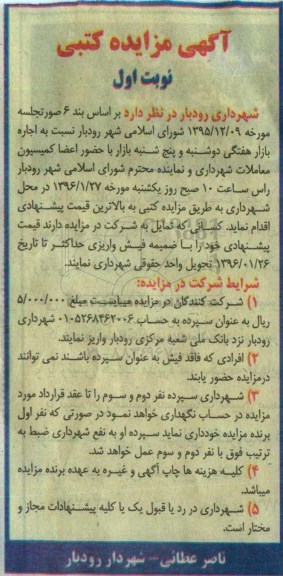 آگهی مزایده کتبی
نوبت اول
شهرداری رودبار در نظر دارد بر اساس بند ۶ صورتجلسه
مورخه ۱۳۹۵/۱۲/۰۹ شورای اسلامی شهر رودبار نسبت به اجاره
بازار هفتگی دوشنبه و پنج شنبه بازار با حضور اعضا کمیسیون
معاملات شهرداری و نماینده محترم شورای اسلامی شهر رودبار
راس ساعت ۱۰ صبح روز یکشنبه مورخه ۱۳۹۶/۱/۲۷ در محل
شهرداری به طریق مزایده کتبی به بالاترین قیمت پیشنهادی
اقدام نماید. کسانی که تمایل به شرکت در مزایده دارند قیمت
پیشنهادی خود را با ضمیمه فیش واریزی حداکثر تا تاریخ
۱۳۹۶/۰۱/۲۶ تحویل واحد حقوقی شهرداری نمایند.
شرایط شرکت در مزایده:
۱) شرکت کنندگان در مزایده میبایست مبلغ ۵/۰۰۰/۰۰۰
ریال به عنوان سپرده به حساب ۰۱۰۵۲۶۸۴۶۲۰۰۶ شهرداری
رودبار نزد بانک ملی شعبه مرکزی رودبار واریز نمایند.
۲) افرادی که فاقد فیش به عنوان سپرده باشند نمی توانند
درمزایده حضور یابند.
۳) شهرداری سپرده نفر دوم و سوم را تا عقد قرارداد مورد
مزایده در حساب نگهداری خواهد نمود در صورتی که نفر اول
برنده مزایده خودداری نماید سپرده او به نفع شهرداری ضبط به
ترتیب فوق با نفر دوم و سوم عمل خواهد شد.
۴) کلیه هزینه ها چاپ آگهی و غیره به عهده برنده مزایده
میباشد.
۵) شهرداری در رد یا قبول یک یا کلیه پیشنهادات مجاز و
مختار است.
ناصر عطائی - شهردار رودبار